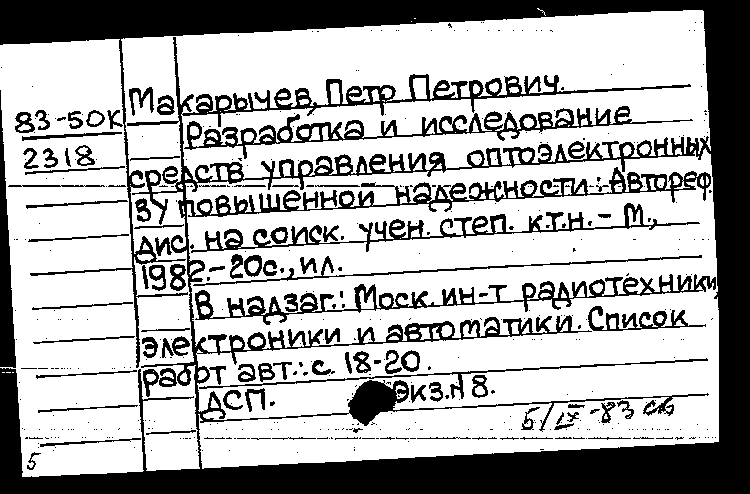 83-50К
2318
Макарычев, Петр Петрович.
Разработка и исследование
средств управления оптоэлектронных
ЗУ повышенной надежности: Автореф.
дис. на соиск. учен. степ. к.т.н. - М.,
1982.-20с., ил.
В надзаг.: Моск. ин-т радиотехники,
электроники и автоматики. Список
работ авт.: с. 18-20.
ДСП. Экз.N 8.
5/IX-83 св
5